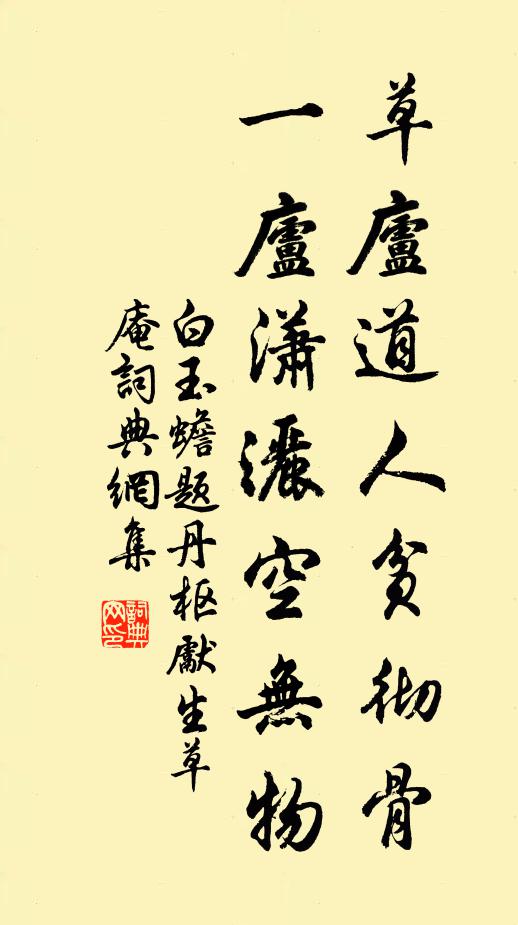 草廬道人貧徹骨
一廬瀟灑空無物
白玉蟾題丹枢獻生草
庵詞典網集
詞典网印